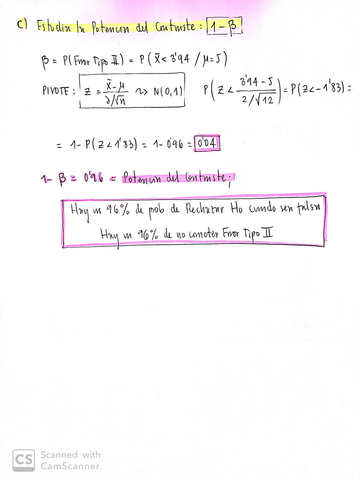 c) Estudia la Potencia del Contraste: 1 - β
β = P(Error Tipo II) = P(x̄ < 3'94 / μ = 5)
PIVOTE: Z = x̄-μ / 2/√n ~> N(0,1) P(Z < 3'94 - 5 / 2/√12) = P(Z < -1'83)
= 1 - P(Z < 1'83) = 1 - 0'96 = 0'04
1 - β = 0'96 = Potencia del Contraste;
Hay un 96% de prob de Rechazar Ho cuando sea falsa
Hay un 96% de no cometer Error Tipo II
CS Scanned with
CamScanner